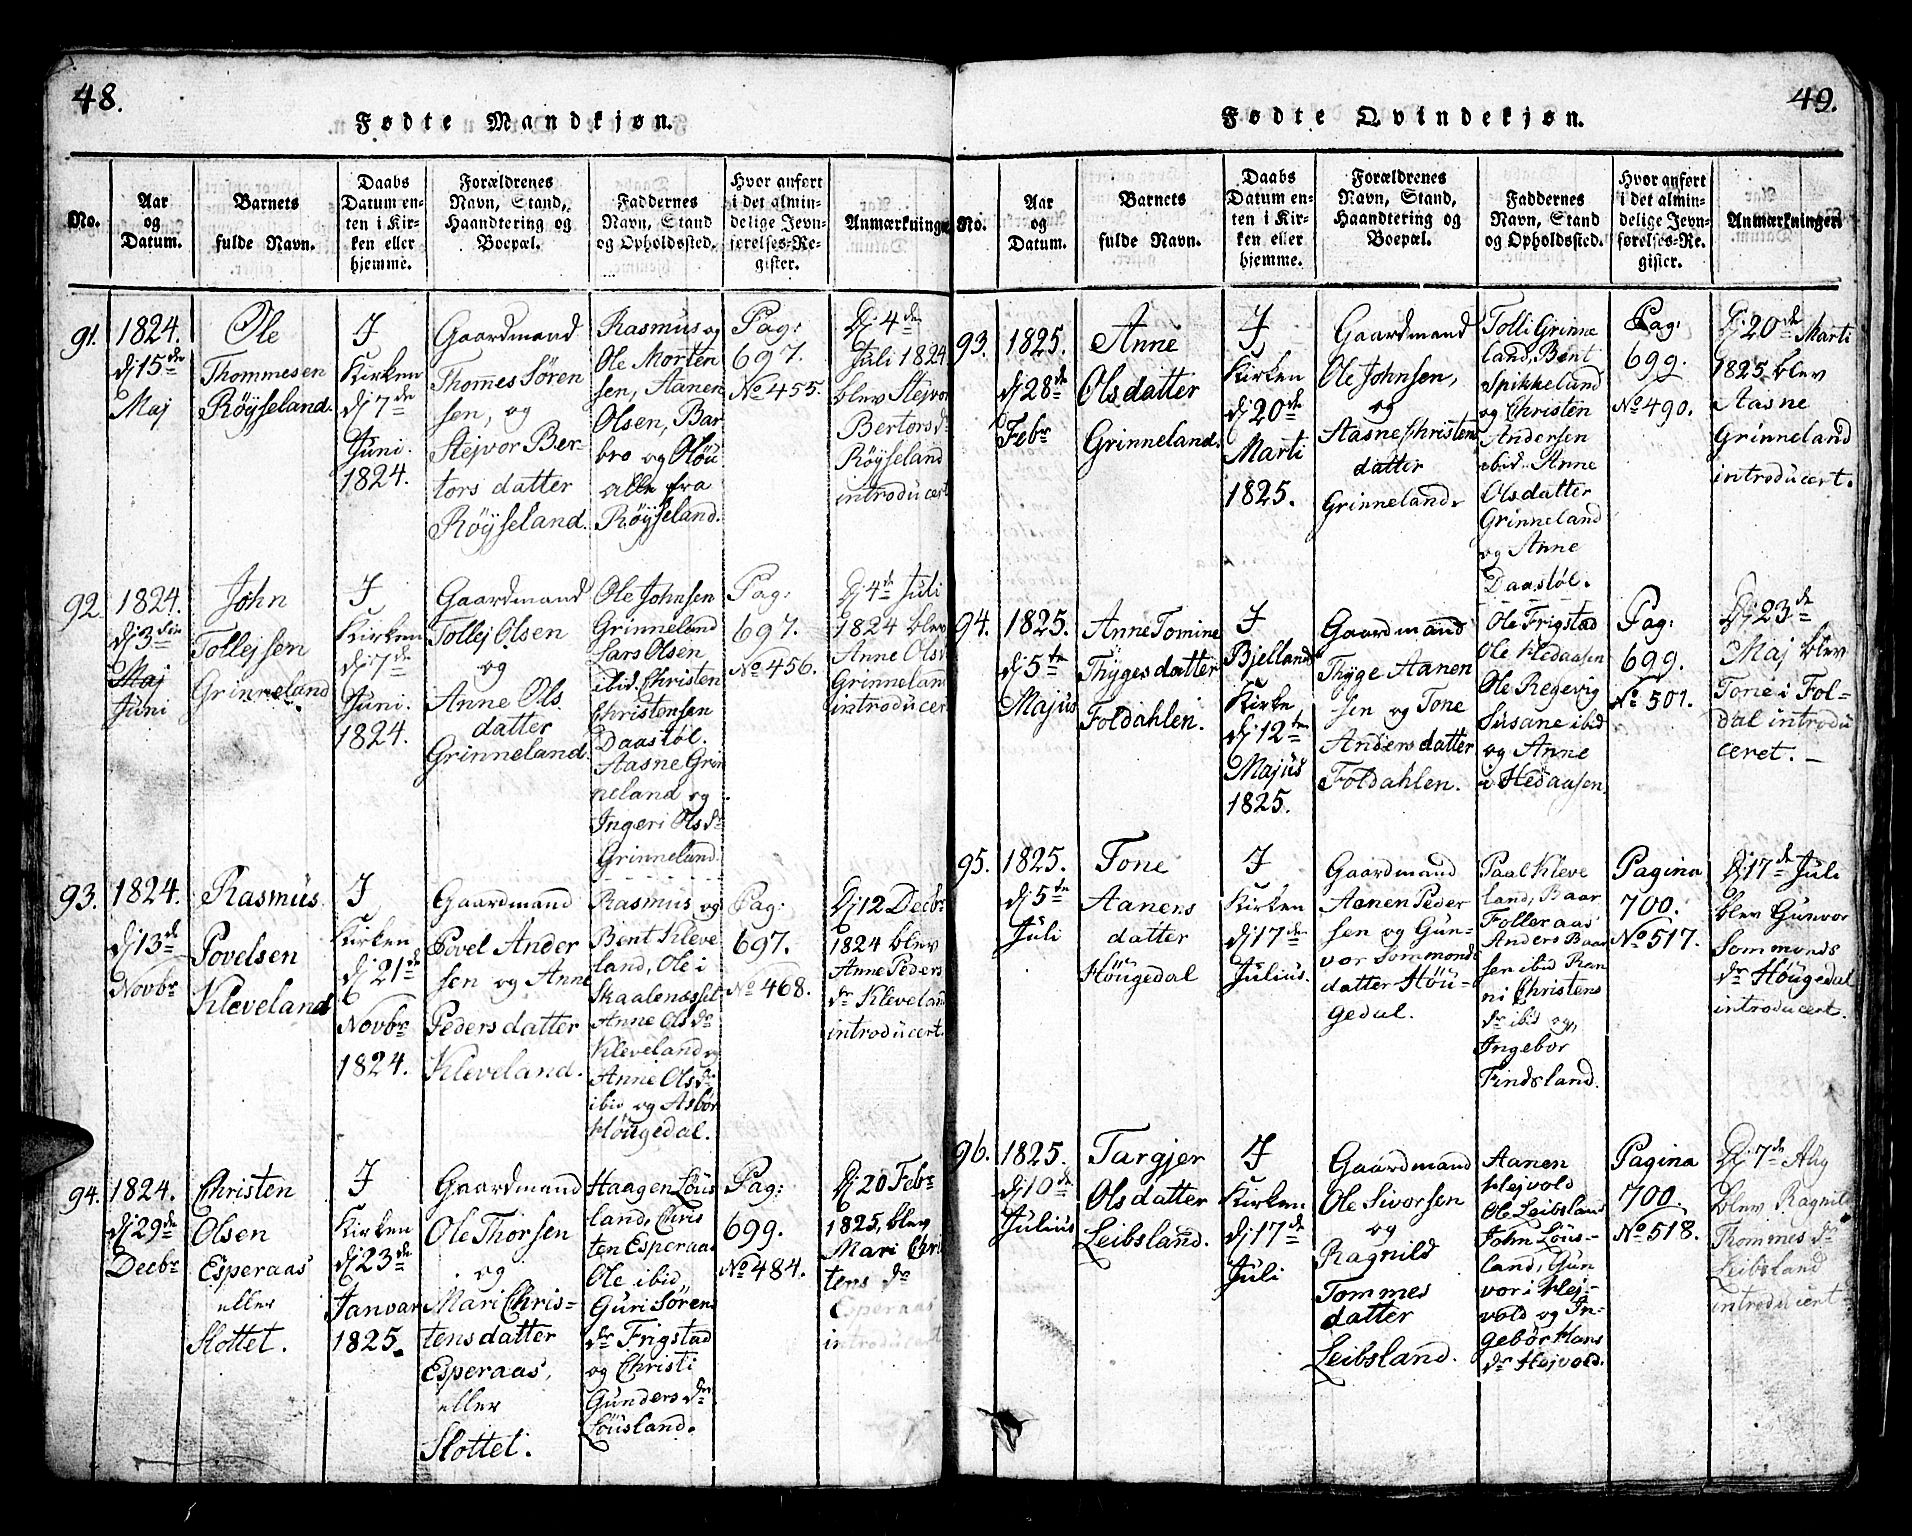 48.
Fødte Mandkjøn.
No.
Aar
og
Datum.
Barnets
fulde Navn.
Daabs
Datum en-
ten i Kir-
ken eller
hjemme.
Forældrenes
Navn, Stand,
Haandtering og
Boepæl.
Faddernes
Navn, Stand
og Opholdssted.
Hvor anført
i det almin-
delige Jevn-
førelses-Re-
gister.
Anmærkninger
91.
1824.
Dj 15de
Maj
Ole
Thommesen
Röyseland.
I
Kirken
dj 7de
Juni.
1824.
Gaardmand
Thomes Sören
sen, og
Stejvor Ber-
tors datter
Röyseland.
Rasmus og
Ole Morten
sen, Aanen
Olsen, Bar
bro og Höu
alle fra
Röyseland.
Pag:
697.
No 455.
Dj 4de
Juli 1824
blev Stejvor
Bertorsd
Röyseland
introducert
92.
1824.
Dj 3die
Maj
Juni
John
Tollejsen
Grinneland
I
Kirken
dj 7de
Juni.
1824.
Gaardmand
Tollej Olsen
og
Anne Ols
datter
Grinneland.
Ole Johnsen
Grinneland
Lars Olsen
ibid. Christen
Christensen
Daastöl.
Aasne Grin
neland og
Ingeri Ols dr
Grinneland.
Pag:
697.
No 456.
Dj 4de Juli
1824 blev
Anne Olsd
Grinnelan
introducer
93.
1824.
Dj 13de
Novbr
Rasmus
Povelsen
Kleveland
I
Kirken
dj 21de
Novbr
1824.
Gaardmand
Povel Ander
sen og Anne
Peders datter
Kleveland.
Rasmus og
Bent Kleve
land, Ole i
Skaalenæsset
Anne Ols dr
Kleveland og
Anne Ols dr
ibid og Asbör
Höugedal.
Pag:
697.
No 468.
Dj 12 Decbr
1824 blev
Anne Peders
dr Kleveland
introducert.
94.
1824.
Dj 29de
Decbr
Christen
Olsen
Esperaas
eller
Slottet.
I
Kirken
dj 23de
Januar
1825.
Gaardmand
Ole Thorsen
og
Mari Chris-
tens datter
Esperaas,
eller
Slottet.
Haagen Löus
land, Chris
ten Esperaas
Ole ibid,
Guri Sörens
dr Frigstad
og Christi
Gunders dr
Löusland.
Pag:
699.
No 484.
Dj 20 Febr
1825, blev
Mari Chris
tens dr
Esperaas
introducert
49.
Fødte Qvindekjøn.
No.
Aar
og
Datum.
Barnets
fulde Navn.
Daabs
Datum en-
ten i Kir-
ken eller
hjemme.
Forældrenes
Navn, Stand,
Haandtering og
Boepæl.
Faddernes
Navn, Stand
og Opholdssted.
Hvor anført
i det almin-
delige Jevn-
førelses-Re-
gister.
Anmærkninger
93.
1825.
Dj 28de
Febr
Anne
Olsdatter
Grinneland.
I
Kirken
dj 20de
Marti
1825.
Gaardmand
Ole Johnsen,
og
Aasne Christens
datter
Grinneland.
Tolli Grinne
land, Bent
Spikkeland
og Christen
Andersen
ibid. Anne
Olsdatter
Grinneland
og Anne
Daastöl.
Pag:
699.
No 490.
Dj 20de Marti
1825 blev
Aasne
Grinneland
introducert.
94.
1825.
Dj 5te
Majus
Anne Tomine
Thyges datter
Foldahlen.
I
Bjelland
Kirke
dj 12te
Majus
1825.
Gaardmand
Thyge Aanen
sen og Tone
Anders datter
Foldahlen.
Ole Frigstad
Ole Hedaasen
Ole Regevig
Susane ibid
og Anne
i Hedaasen.
Pag:
699.
No 501.
Dj 23de
Maj blev
Tone i Fol-
dal introdu
ceret. -
95.
1825.
Dj 5te
Juli
Tone
Aanens
datter
Höugedal
I
Kirken
dj 17de
Julius.
Gaardmand
Aanen Peder
sen og Gun-
vor Sommonds
datter Höu-
gedal.
Paal Kleve
land, Baar
Folleraas
Anders Baar
sen ibid Ran
ni Christens
dr ibid og,
Ingebor
Findsland.
Pagina
700.
No 517.
Dj 17de Juli
blev Gunvor
Sommonds
dr Höugedal
introducert.
96.
1825.
Dj 10de
Julius
Targjer
Ols datter
Leibsland.
I
Kirken
dj 17de
Juli
Gaardmand
Ole Sivorsen
og
Ragnild
Tommes
datter
Leibsland.
Aanen
Hejvold
Ole Leibsland
John Löus-
land, Gun
vor i Hej-
vold og In-
gebör Hans
dr Hejvold.
Pagina
700.
No 518.
Dj 7de Aug
blev Ragnild
Thommes dr
Leibsland
introducert